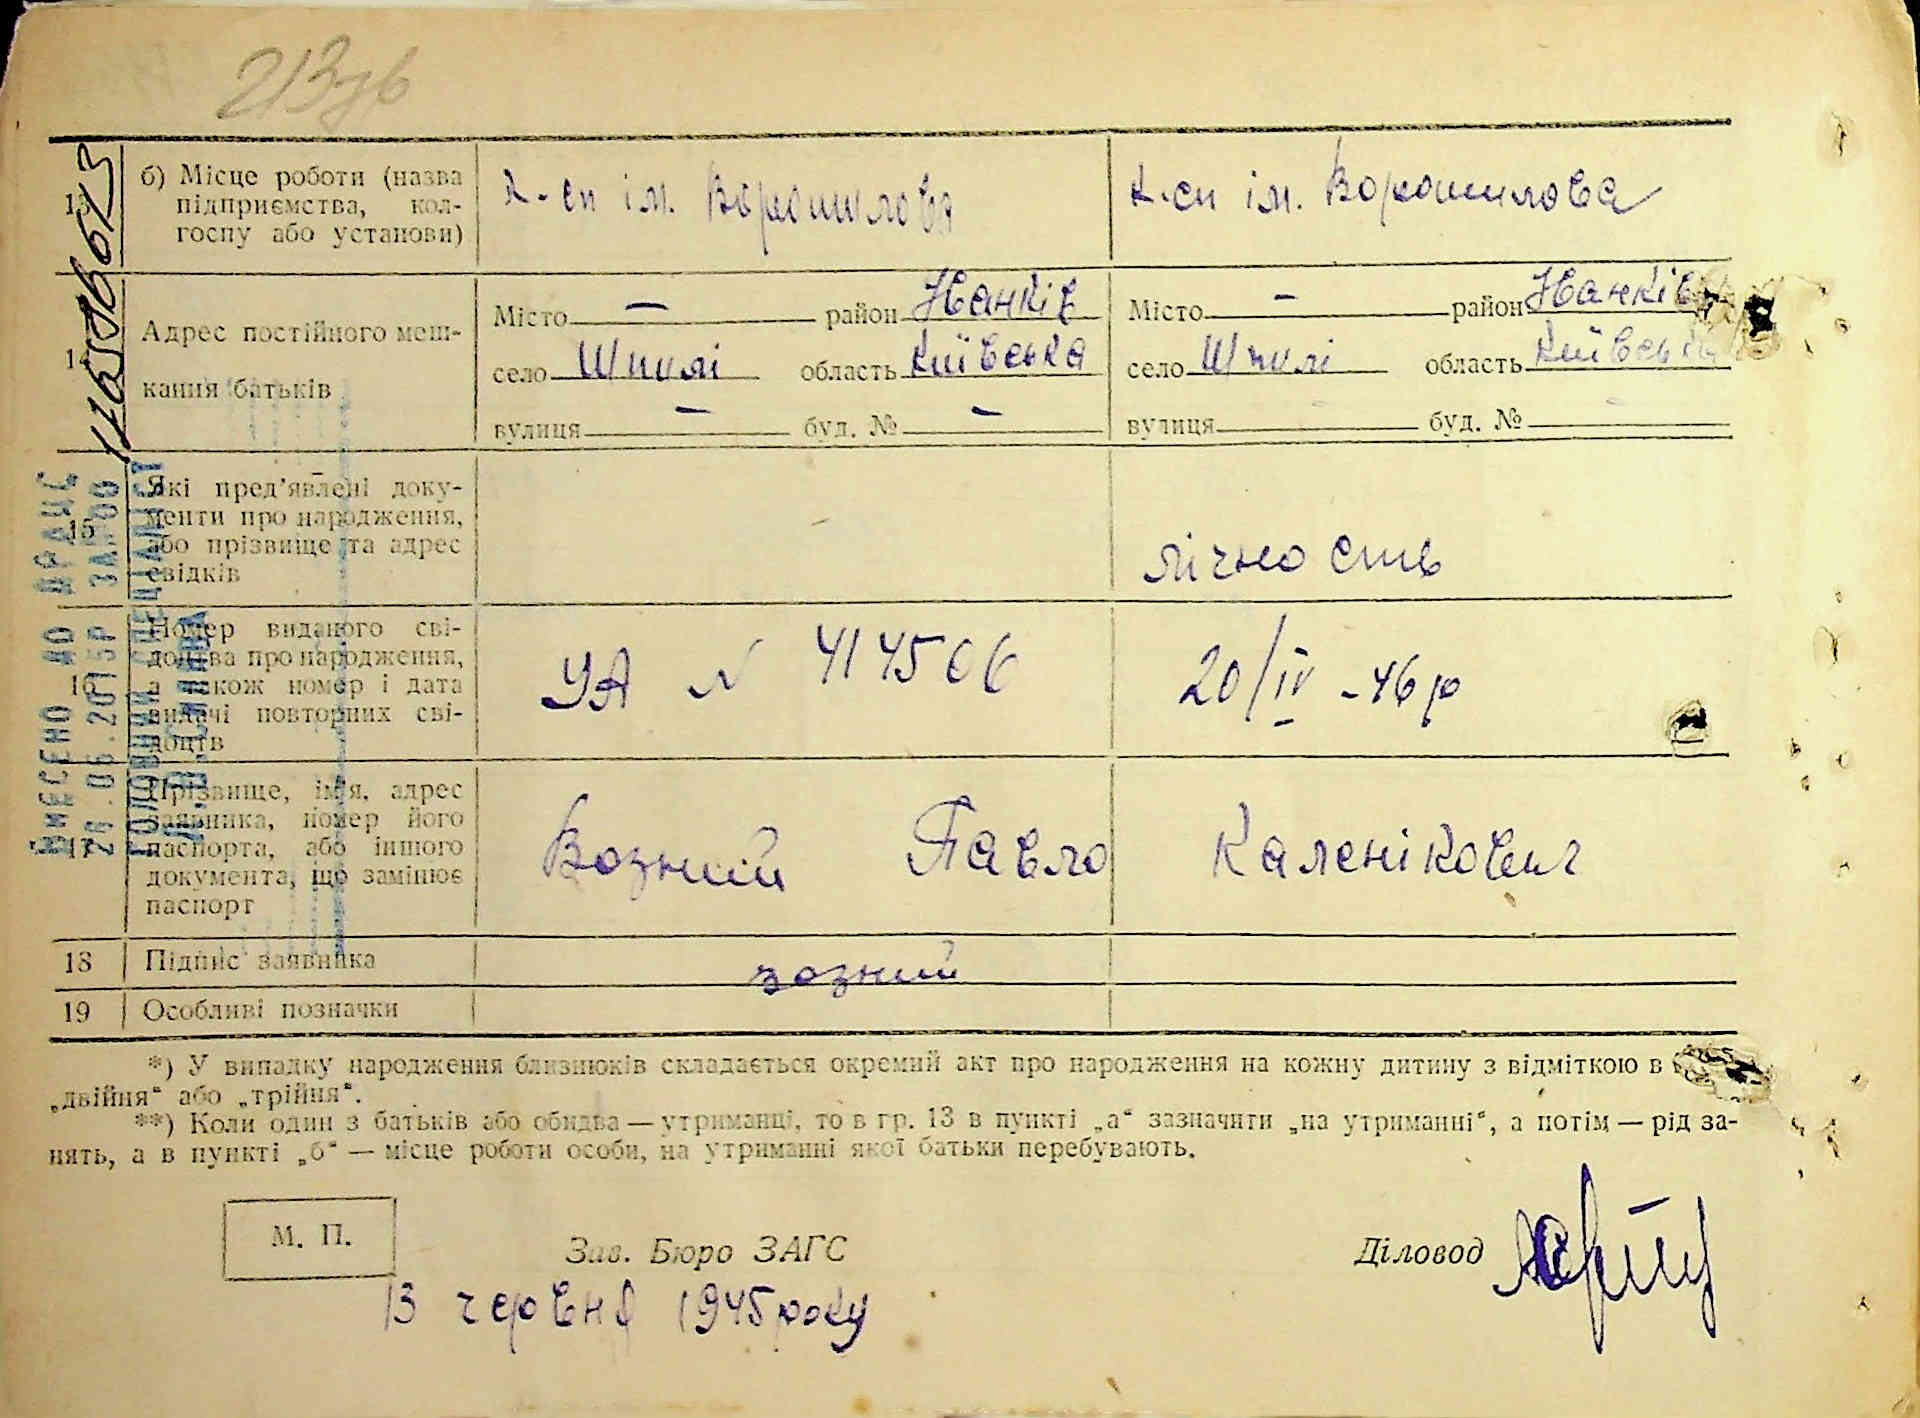 213зв
б) Місце роботи (назва
підприємства, кол-
госпу або установи)
к-сп ім. Ворошилова
к-сп ім. Ворошилова
14
Адрес постійного меш-
кання батьків
Місто — район Іванків
село Шпилі область Київська
вулиця — буд. № —
Місто — район Іванків
село Шпилі область Київська
вулиця буд. №
15
Які пред’явлені доку-
менти про народження,
або прізвище та адрес
свідків
лічность
16
Номер виданого сві-
доцтва про народження,
а також номер і дата
видачі повторних сві-
доцтв
УА N 414506
20/IV -46р
17
Прізвище, ім’я, адрес
заявника, номер його
паспорта, або іншого
документа, що замінює
паспорт
Возний Павло Каленікович
18 Підпис заявника
возний
19 Особливі позначки
*) У випадку народження близнюків складається окремий акт про народження на кожну дитину з відміткою в
„двійня“ або „трійня“.
**) Коли один з батьків або обидва — утриманці, то в гр. 13 в пункті „а“ зазначити „на утриманні“, а потім — рід за-
нять, а в пункті „б“ — місце роботи особи, на утриманні якої батьки перебувають.
М. П.
Зав. Бюро ЗАГС
Діловод
13 червня 1945 року
ВНЕСЕНО ДО ДРАЦС
ГОЛОВНИЙ СПЕЦІАЛІСТ